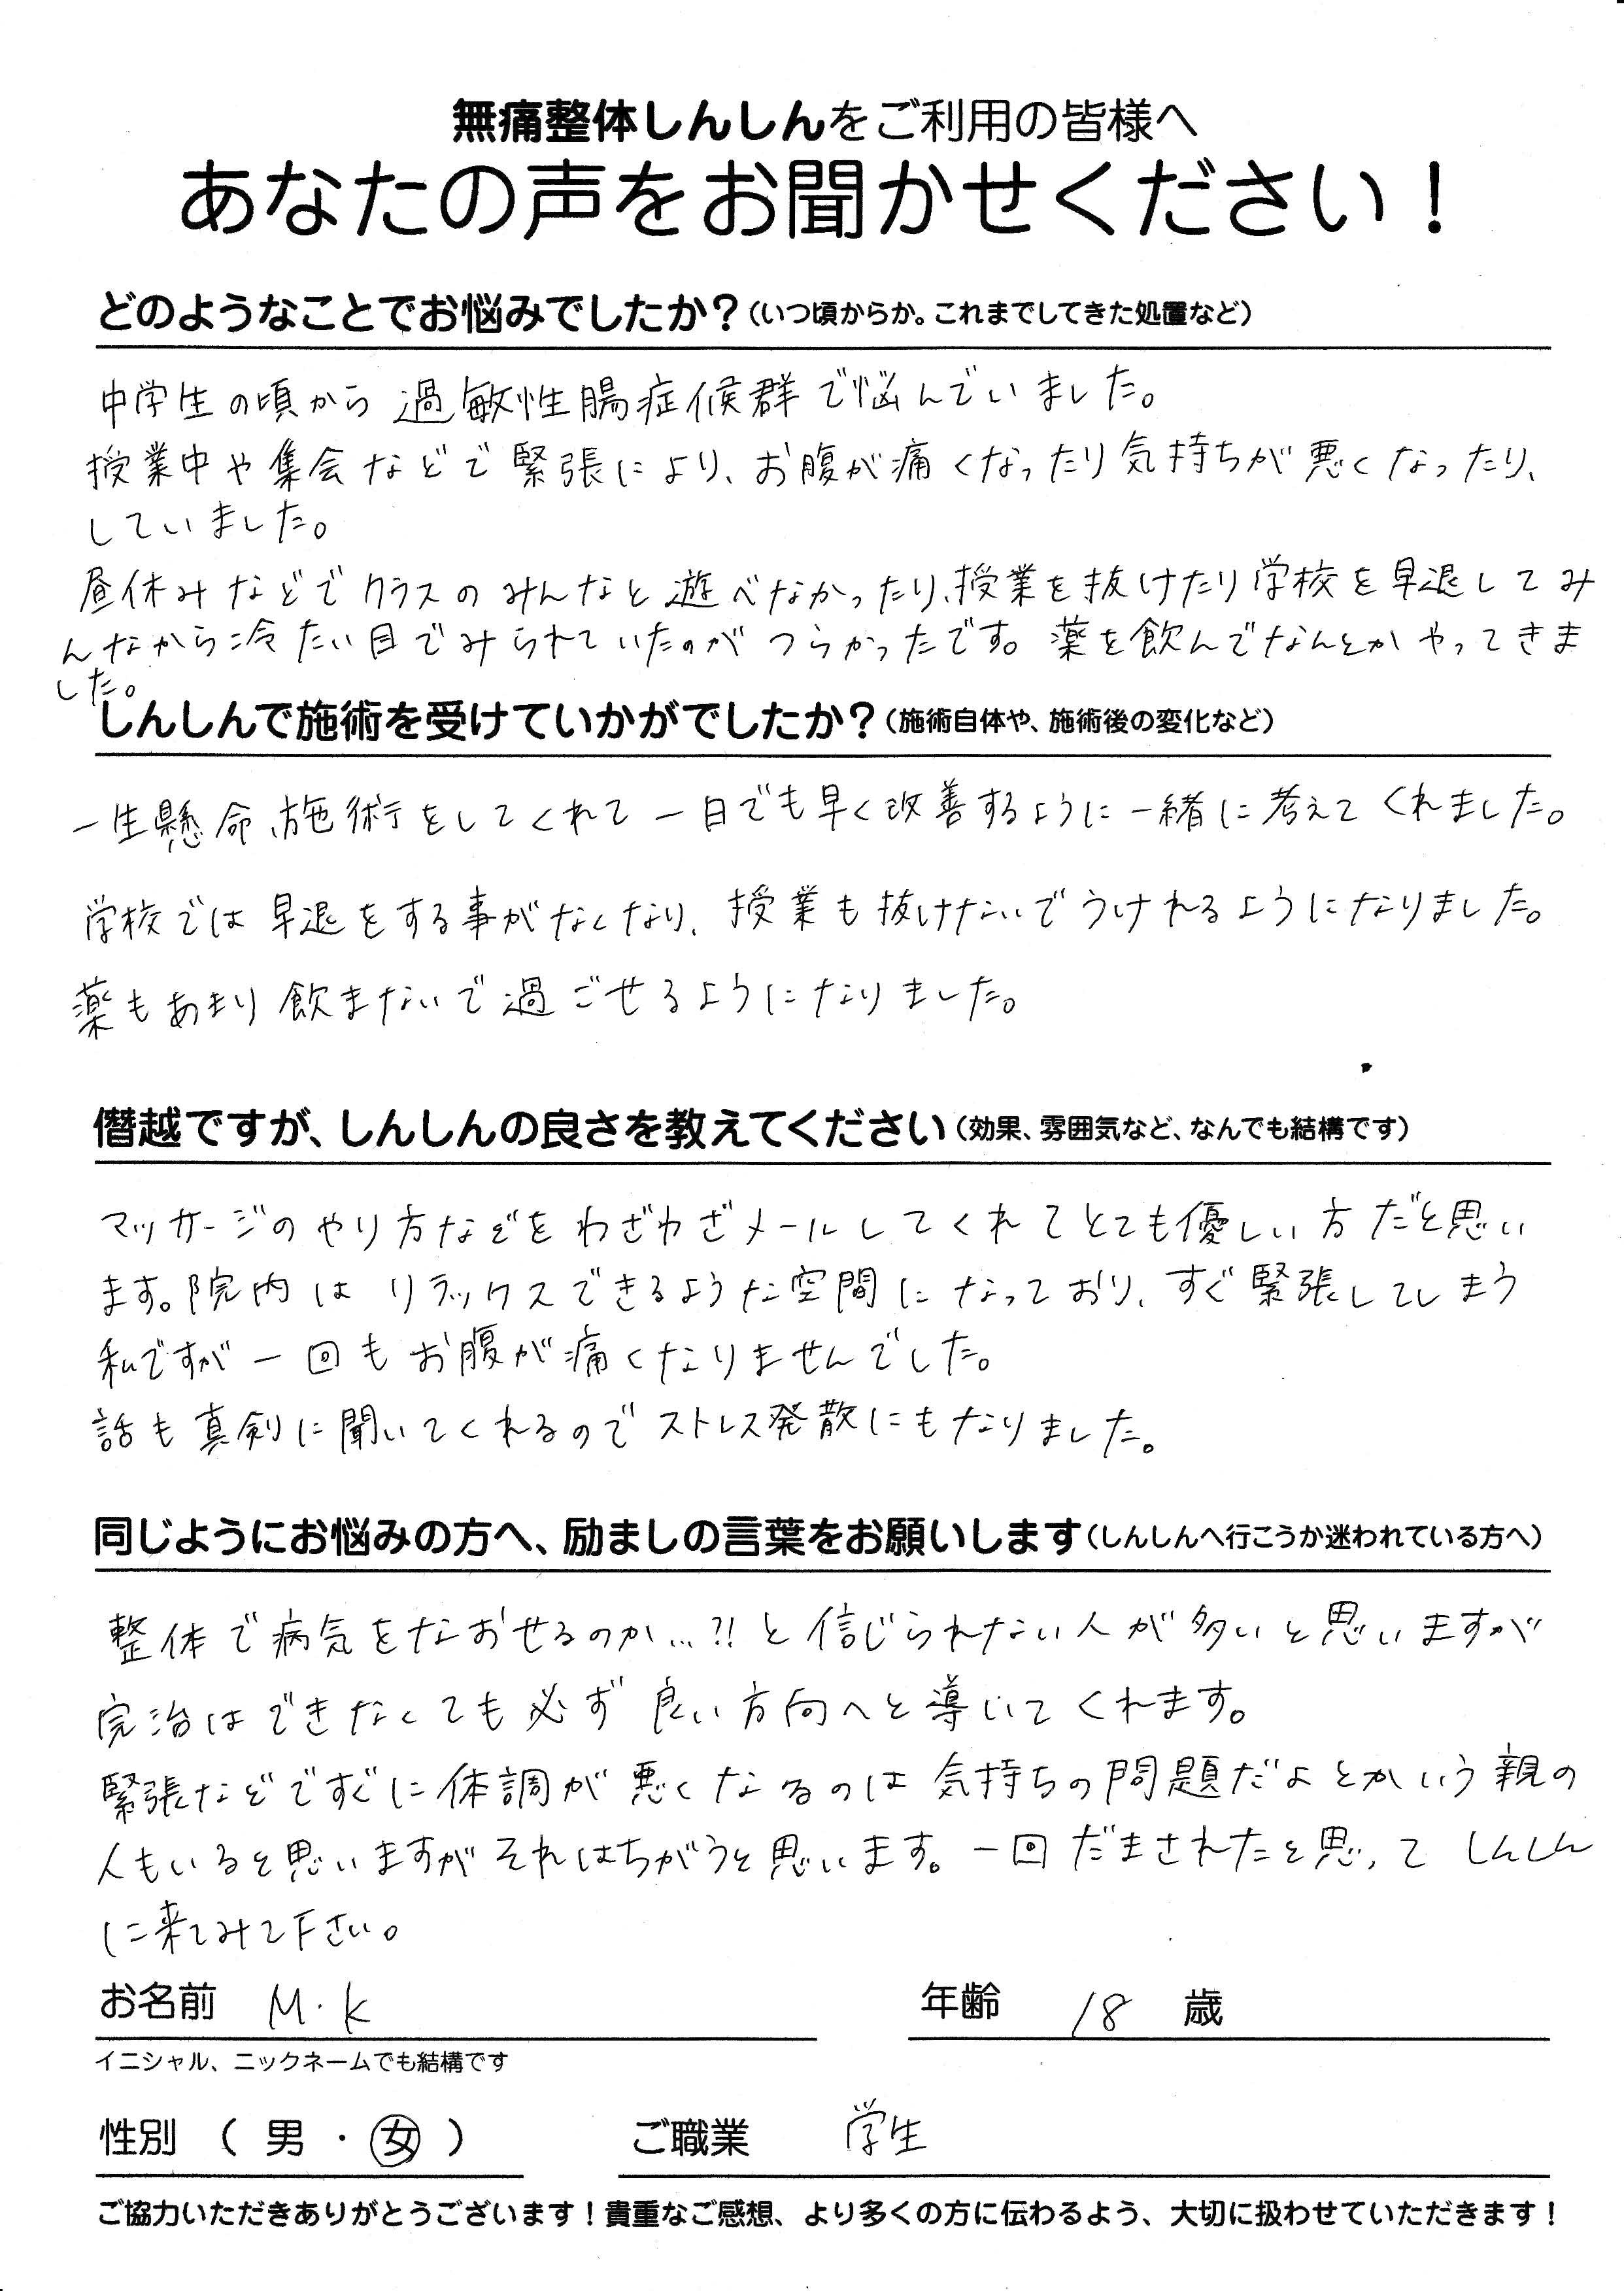 無痛整体しんしんをご利用の皆様へ
あなたの声をお聞かせください！
どのようなことでお悩みでしたか？（いつ頃からか。これまでしてきた処置など）
中学生の頃から過敏性腸症候群で悩んでいました。
授業中や集会などで緊張により、お腹が痛くなったり気持ちが悪くなったり、
していました。
昼休みなどでクラスのみんなと遊べなかったり、授業を抜けたり学校を早退してみ
んなから冷たい目でみられていたのがつらかったです。薬を飲んでなんとかやってきま
した。
しんしんで施術を受けていかがでしたか？（施術自体や、施術後の変化など）
一生懸命、施術をしてくれて一日でも早く改善するように一緒に考えてくれました。
学校では早退をする事がなくなり、授業も抜けないでうけれるようになりました。
薬もあまり飲まないで過ごせるようになりました。
僭越ですが、しんしんの良さを教えてください（効果、雰囲気など、なんでも結構です）
マッサージのやり方などをわざわざメールしてくれてとても優しい方だと思い
ます。院内はリラックスできるような空間になっており、すぐ緊張してしまう
私ですが一回もお腹が痛くなりませんでした。
話も真剣に聞いてくれるのでストレス発散にもなりました。
同じようにお悩みの方へ、励ましの言葉をお願いします（しんしんへ行こうか迷われている方へ）
整体で病気をなおせるのか…?!と信じられない人が多いと思いますが
完治はできなくても必ず良い方向へと導いてくれます。
緊張などですぐに体調が悪くなるのは気持ちの問題だよとかいう親の
人もいると思いますがそれはちがうと思います。一回だまされたと思ってしんしん
に来てみて下さい。
お名前 M・K 年齢 18 歳
イニシャル、ニックネームでも結構です
性別（男・女） ご職業 学生
ご協力いただきありがとうございます！貴重なご感想、より多くの方に伝わるよう、大切に扱わせていただきます！